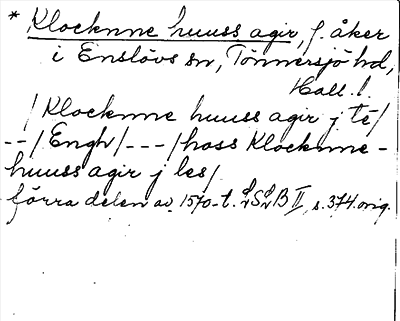 * Klocknne huuss agir, f. åker
i Enslövs sn, Tönnersjö hd,
Hall. l.
/Klocknne huuss agir j té/
--/Engh/---/hoss Klocknne-
huuss agir j les/
förra delen av 1570-t. SB II, s. 374. orig.